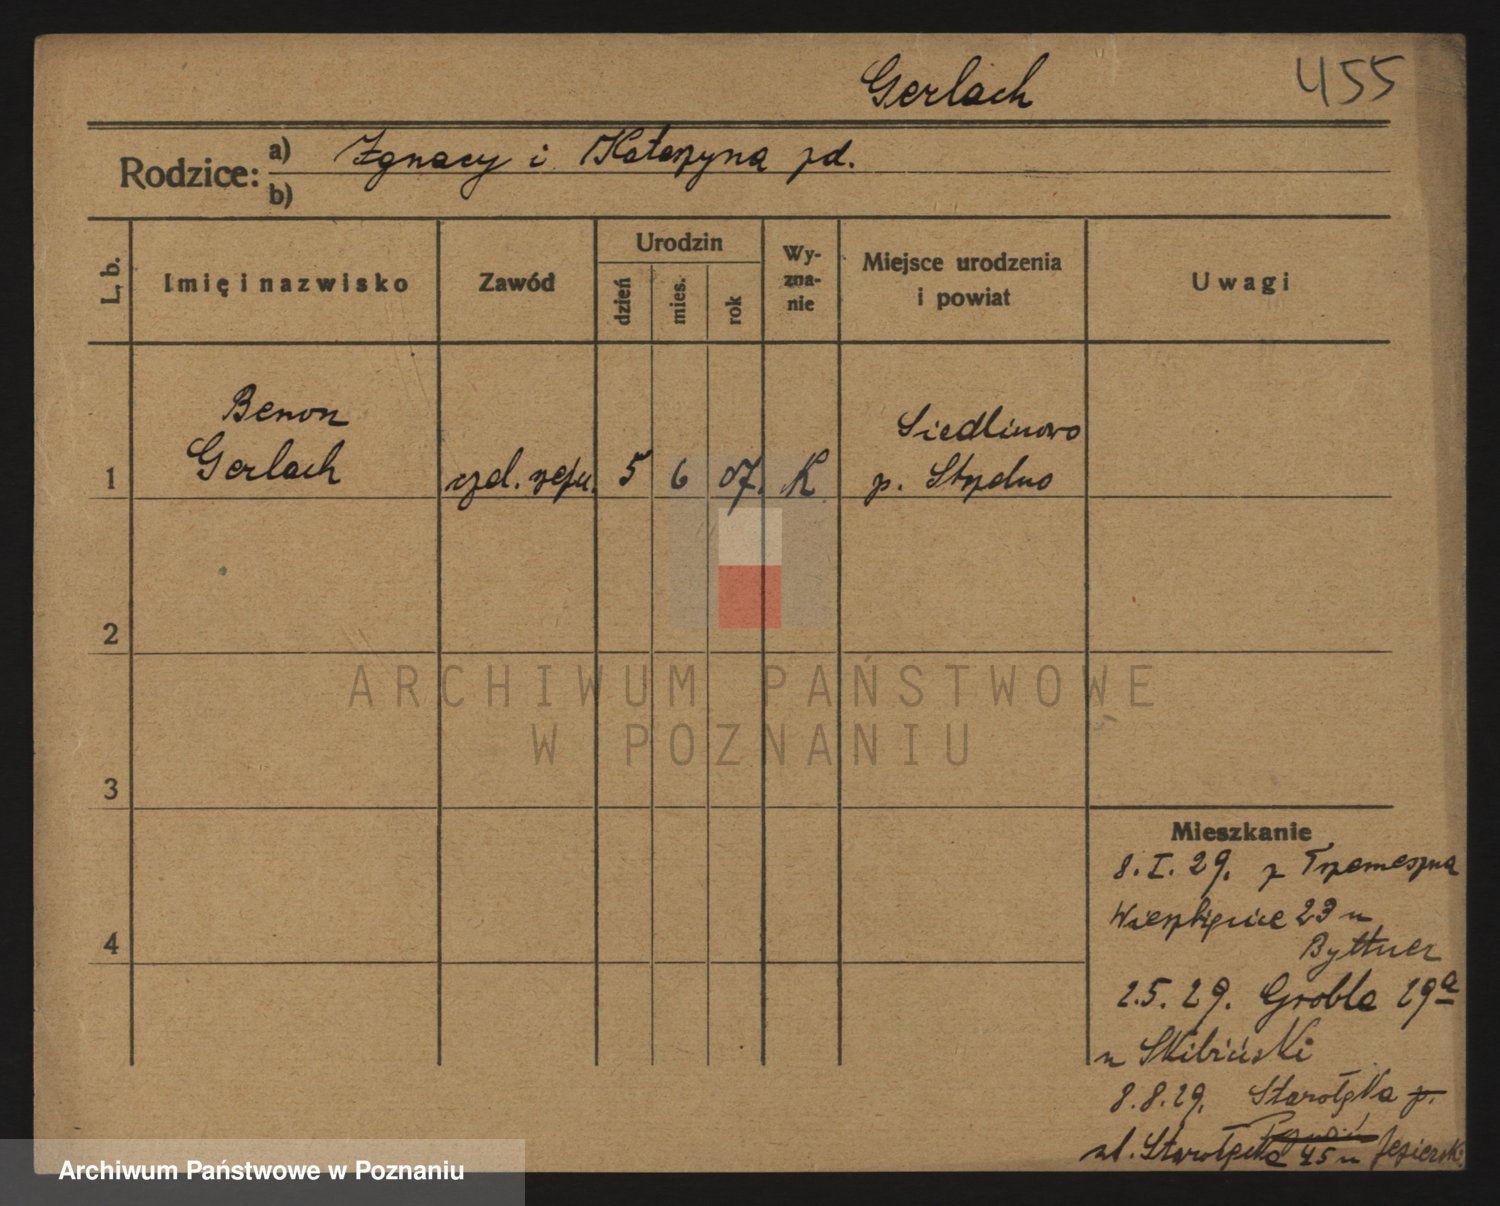 Gerlach 455
Rodzice: a) Ignacy i Katarzyna zd.
b)
L. b. Imię i nazwisko Zawód Urodzin dzień mies. rok Wy-zna-nie Miejsce urodzenia i powiat Uwagi
Benon
Gerlach
Siedlimowo
1 5 6 07. K p. Strzelno
2
ARCHIWUM PAŃSTWOWE
W POZNANIU
3
Mieszkanie
8. I. 29. z Trzemeszna
Wierzbięcice 23 u
4
Byttner
2.5. 29. Grobla 29a
u Skibiński
8.8.29. Starołęka p.
ul. Starołęcka 45 u Jezierski
Archiwum Państwowe w Poznaniu